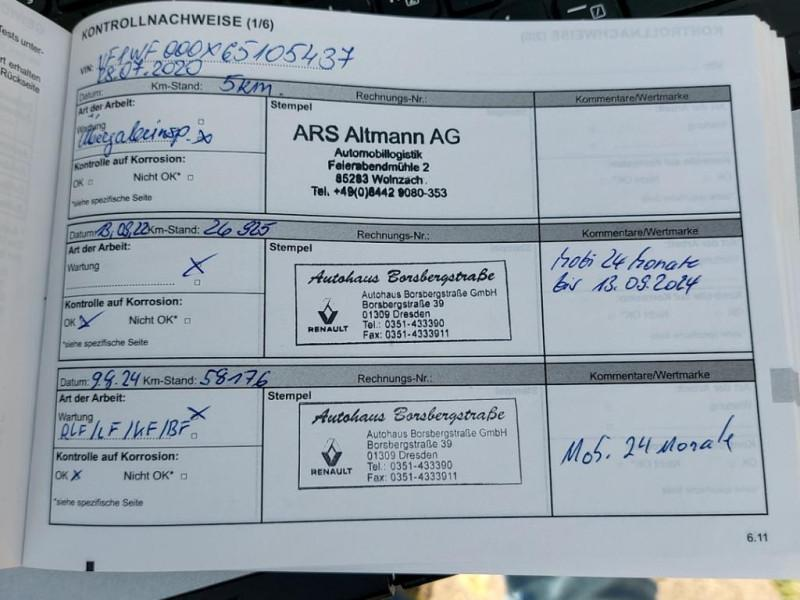 KONTROLLNACHWEISE (1/6)
VIN: VF1WF000X65105437
28.07.2020
Datum: Km-Stand: 5km. Rechnungs-Nr.: Kommentare/Wertmarke
Art der Arbeit: Stempel
Wartung
Übergabeinsp. x
Kontrolle auf Korrosion:
OK □ Nicht OK* □
*siehe spezifische Seite
ARS Altmann AG
Automobillogistik
Feierabendmühle 2
85283 Wolnzach
Tel. +49(0)8442 9080-353
Datum: 13.09.22 Km-Stand: 26 925 Rechnungs-Nr.: Kommentare/Wertmarke
Art der Arbeit: Stempel
Wartung X
Kontrolle auf Korrosion:
OK X Nicht OK* □
*siehe spezifische Seite
Autohaus Borsbergstraße
Autohaus Borsbergstraße GmbH
Borsbergstraße 39
01309 Dresden
Tel.: 0351-433390
Fax: 0351-4333911
RENAULT
Mobi 24 Monate
bis 13.09.2024
Datum: 9.8.24 Km-Stand: 58176 Rechnungs-Nr.: Kommentare/Wertmarke
Art der Arbeit: Stempel
Wartung X
ÖLF/LF/KF/BF □
Kontrolle auf Korrosion:
OK X Nicht OK* □
*siehe spezifische Seite
Autohaus Borsbergstraße
Autohaus Borsbergstraße GmbH
Borsbergstraße 39
01309 Dresden
Tel.: 0351-433390
Fax: 0351-4333911
RENAULT
Mob. 24 Monate
6.11